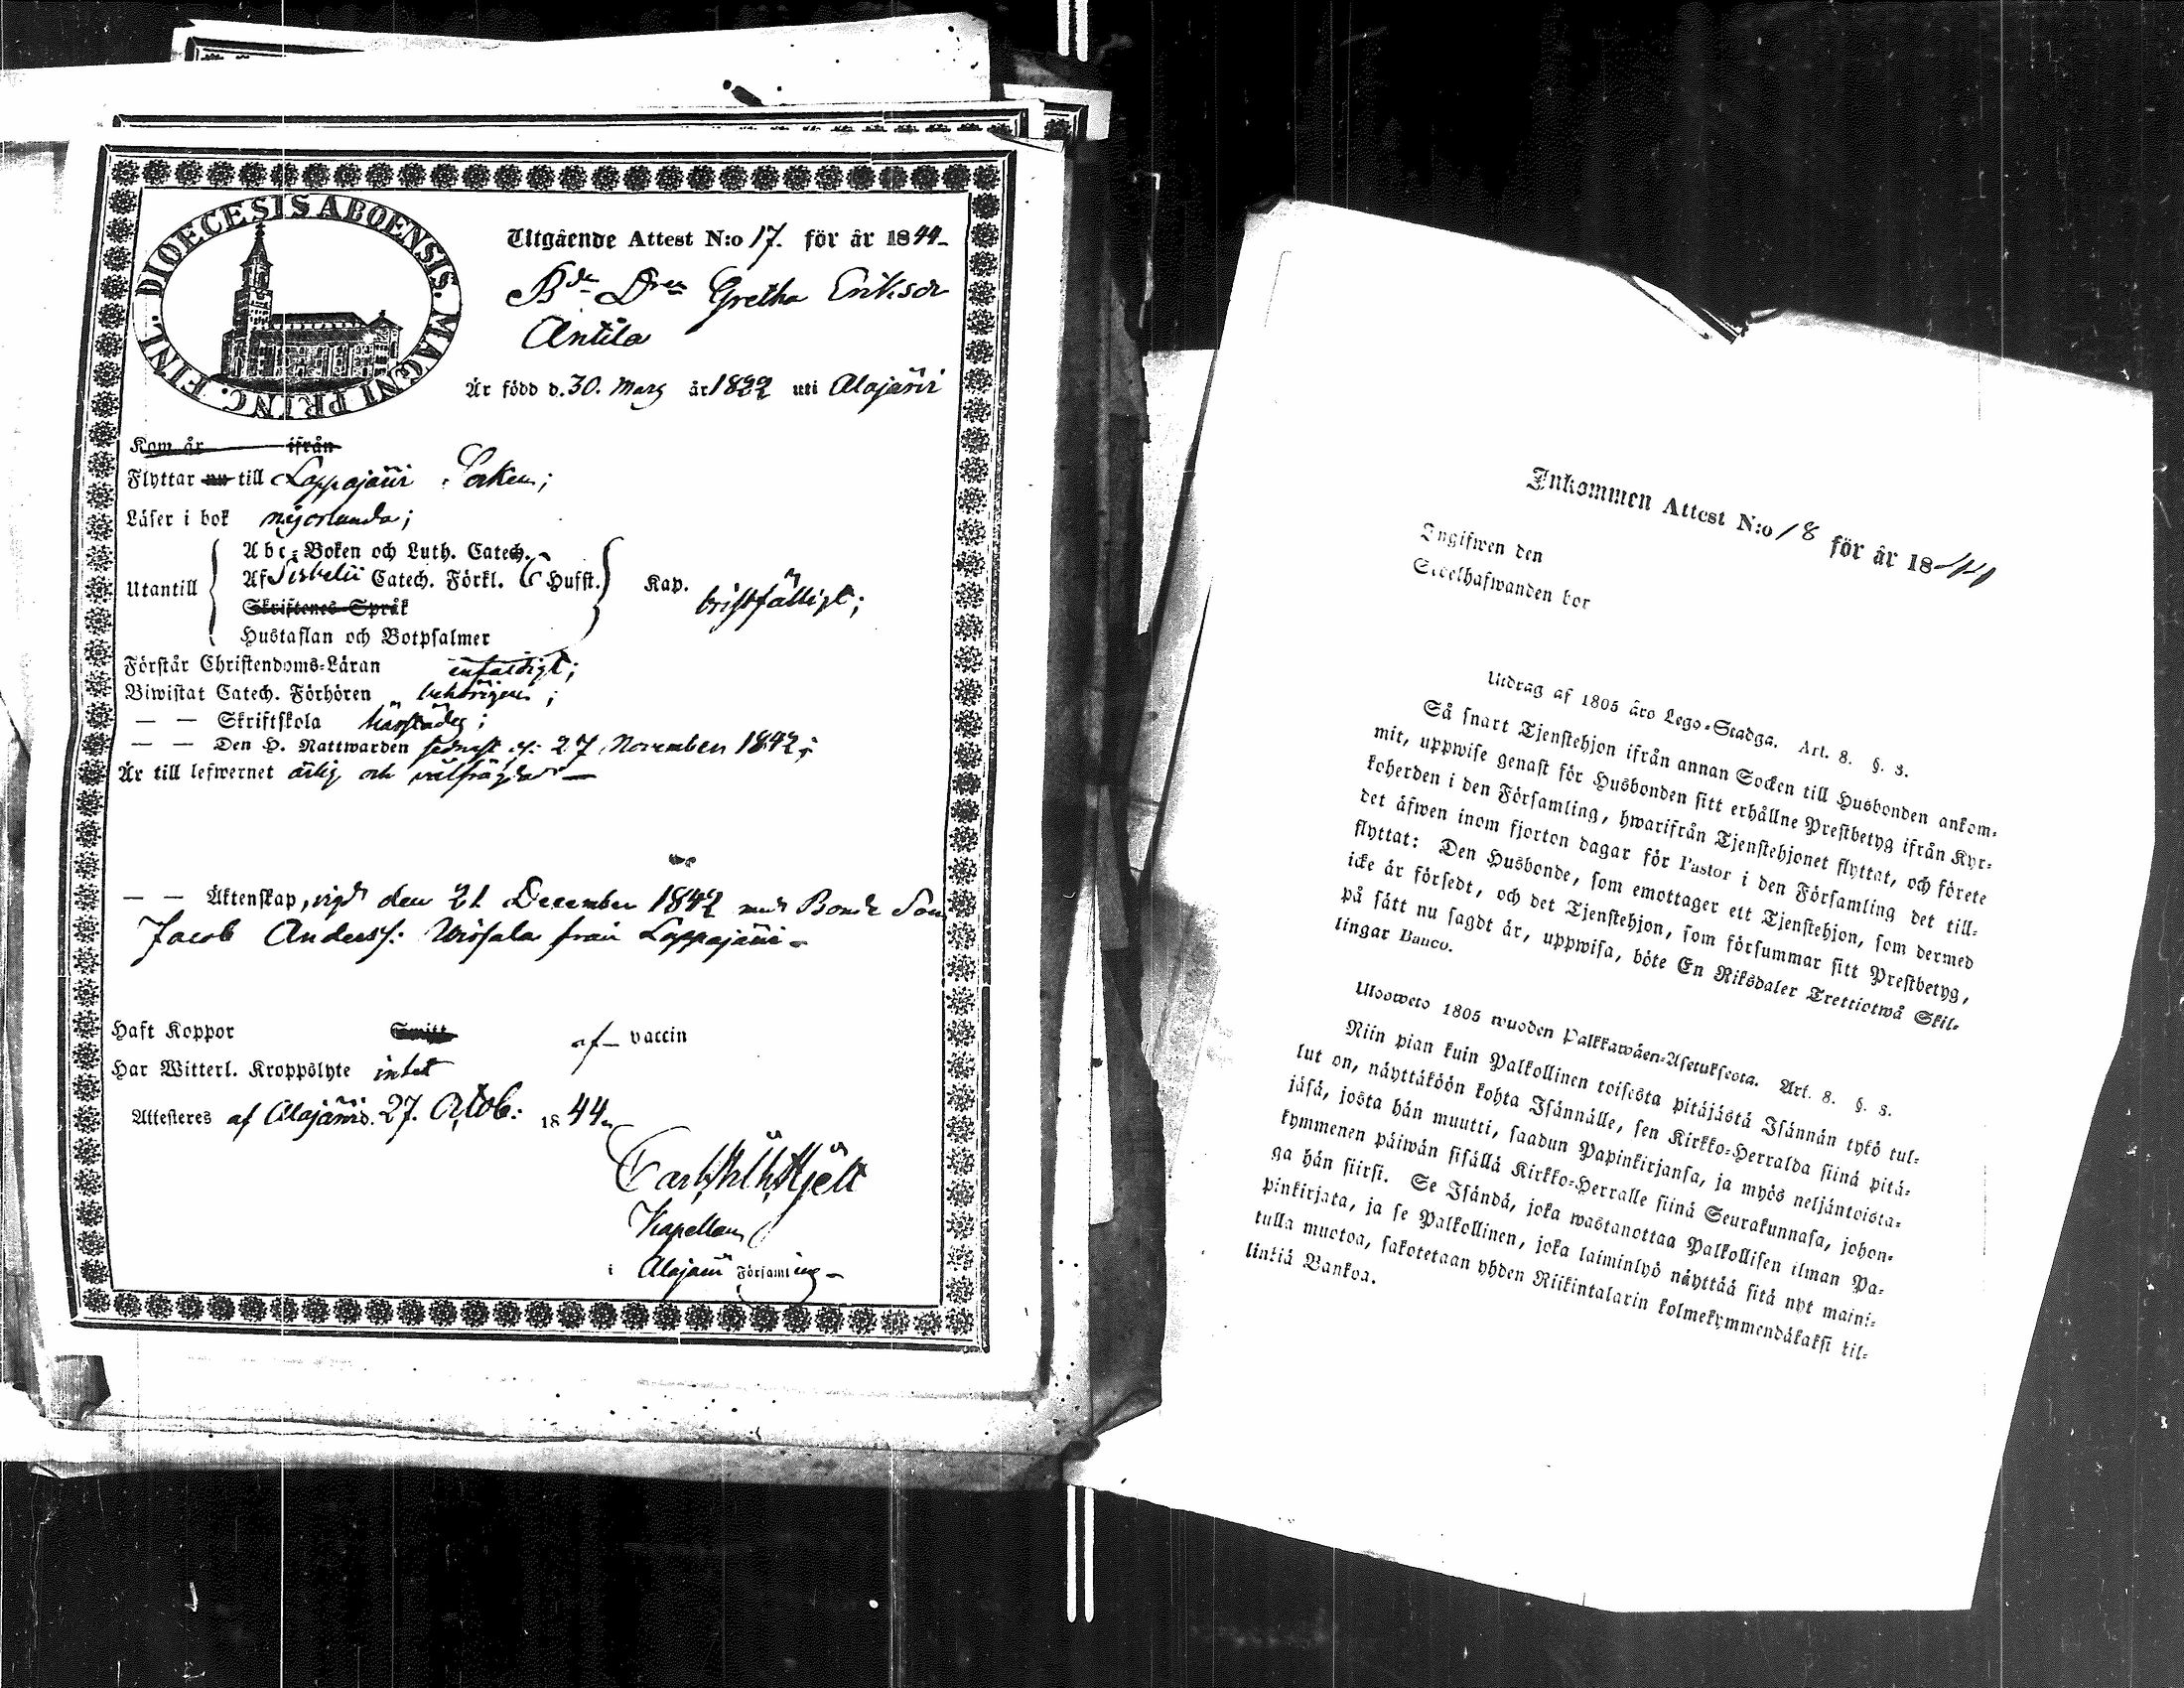 DIOECESIS ABOENSIS. MAGNI PRINC. FINL.
Utgående Attest N:o 17. för år 1844
Bde Dren Gretha Eriksdr
Antila
Är född d. 30. Mars år 1822 uti Alajärvi
Kom år ifrån
Flyttar nu till Lappajärvi Socken;
Läser i bok nöjorlunda;
Utantill
Abc-Boken och Luth. Catech.
Af Svebelii Catech. Förkl. (Husst.) Kap. bristfälligt;
Skriftenes Språk
Hustaflan och Botpsalmer
Förstår Christendoms-Läran enfaldigt;
Biwistat Catech. Förhören behörigen;
— — Skriftskola härstädes;
— — Den H. Nattwarden sednast d. 27 November 1842;
Är till lefwernet ärlig och välfrägdad —
— — Äktenskap, vigd den 21 December 1842 med Bonde Son
Jacob Anderss: Wirsala från Lappajärvi
Haft Koppor Smitt af vaccin
Har Witterl. Kroppslyte intet
Attesteres af Alajärvi d. 27. Octob: 1844.
Carl Wilh. Hjelt
Kapellan
i Alajärvi Församling
Inkommen Attest N:o 18 för år 1844
Ingifwen den
Sedelhafwanden bor
Utdrag af 1805 åro Lego-Stadga. Art. 8. §. 3.
Så snart Tjenstehjon ifrån annan Socken till Husbonden ankom-
mit, uppwise genast för Husbonden sitt erhållne Prestbetyg ifrån Kyr-
koherden i den Församling, hwarifrån Tjenstehjonet flyttat, och förete
det äfwen inom fjorton dagar för Pastor i den Församling det till-
flyttat: Den Husbonde, som emottager ett Tjenstehjon, som dermed
icke är försedt, och det Tjenstehjon, som försummar sitt Prestbetyg,
på sätt nu sagdt är, uppwisa, böte En Riksdaler Trettiotwå Skil-
lingar Banco.
Ulosweto 1805 wuoden Palkkawäen-Asetuksesta. Art. 8. §. 3.
Niin pian kuin Palkollinen toisesta pitäjästä Isännän tykö tul-
lut on, näyttäköön kohta Isännälle, sen Kirkko-Herralda siinä pitä-
jäsä, josta hän muutti, saadun Papinkirjansa, ja myös neljäntoista-
kymmenen päiwän sisällä Kirkko-Herralle siinä Seurakunnasa, johon-
ga hän siirsi. Se Isändä, joka wastanottaa Palkollisen ilman Pa-
pinkirjata, ja se Palkollinen, joka laiminlyö näyttää sitä nyt maini-
tulla muotoa, sakotetaan yhden Riikintalarin kolmekymmendäkaksi kil-
linkiä Bankoa.